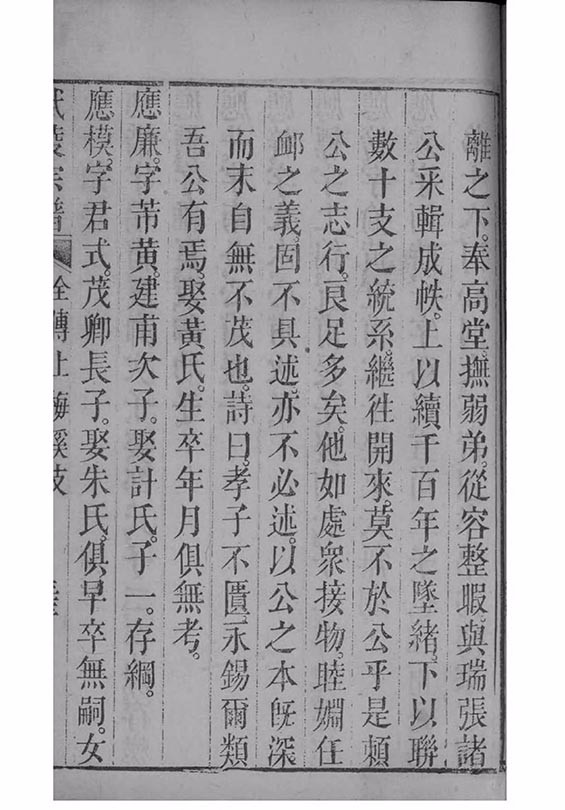 離之下。奉高堂。撫弱弟。從容整暇。與瑞張諸
公釆輯成帙。上以續千百年之墜緒。下以聯
數十支之統系。繼徃開來。莫不於公乎是頼
公之志行。良足多矣。他如處衆接物。睦婣任
䘏之義。固不具述。亦不必述。以公之本旣深
而末自無不茂也。詩曰。孝子不匱。永錫爾類
吾公有焉。娶黃氏。生卒年月俱無考。
應廉。字芾黄。建甫次子。娶計氏。子一。存綱。
應模。字君式。茂卿長子。娶朱氏。俱早卒無嗣。女
宗譜